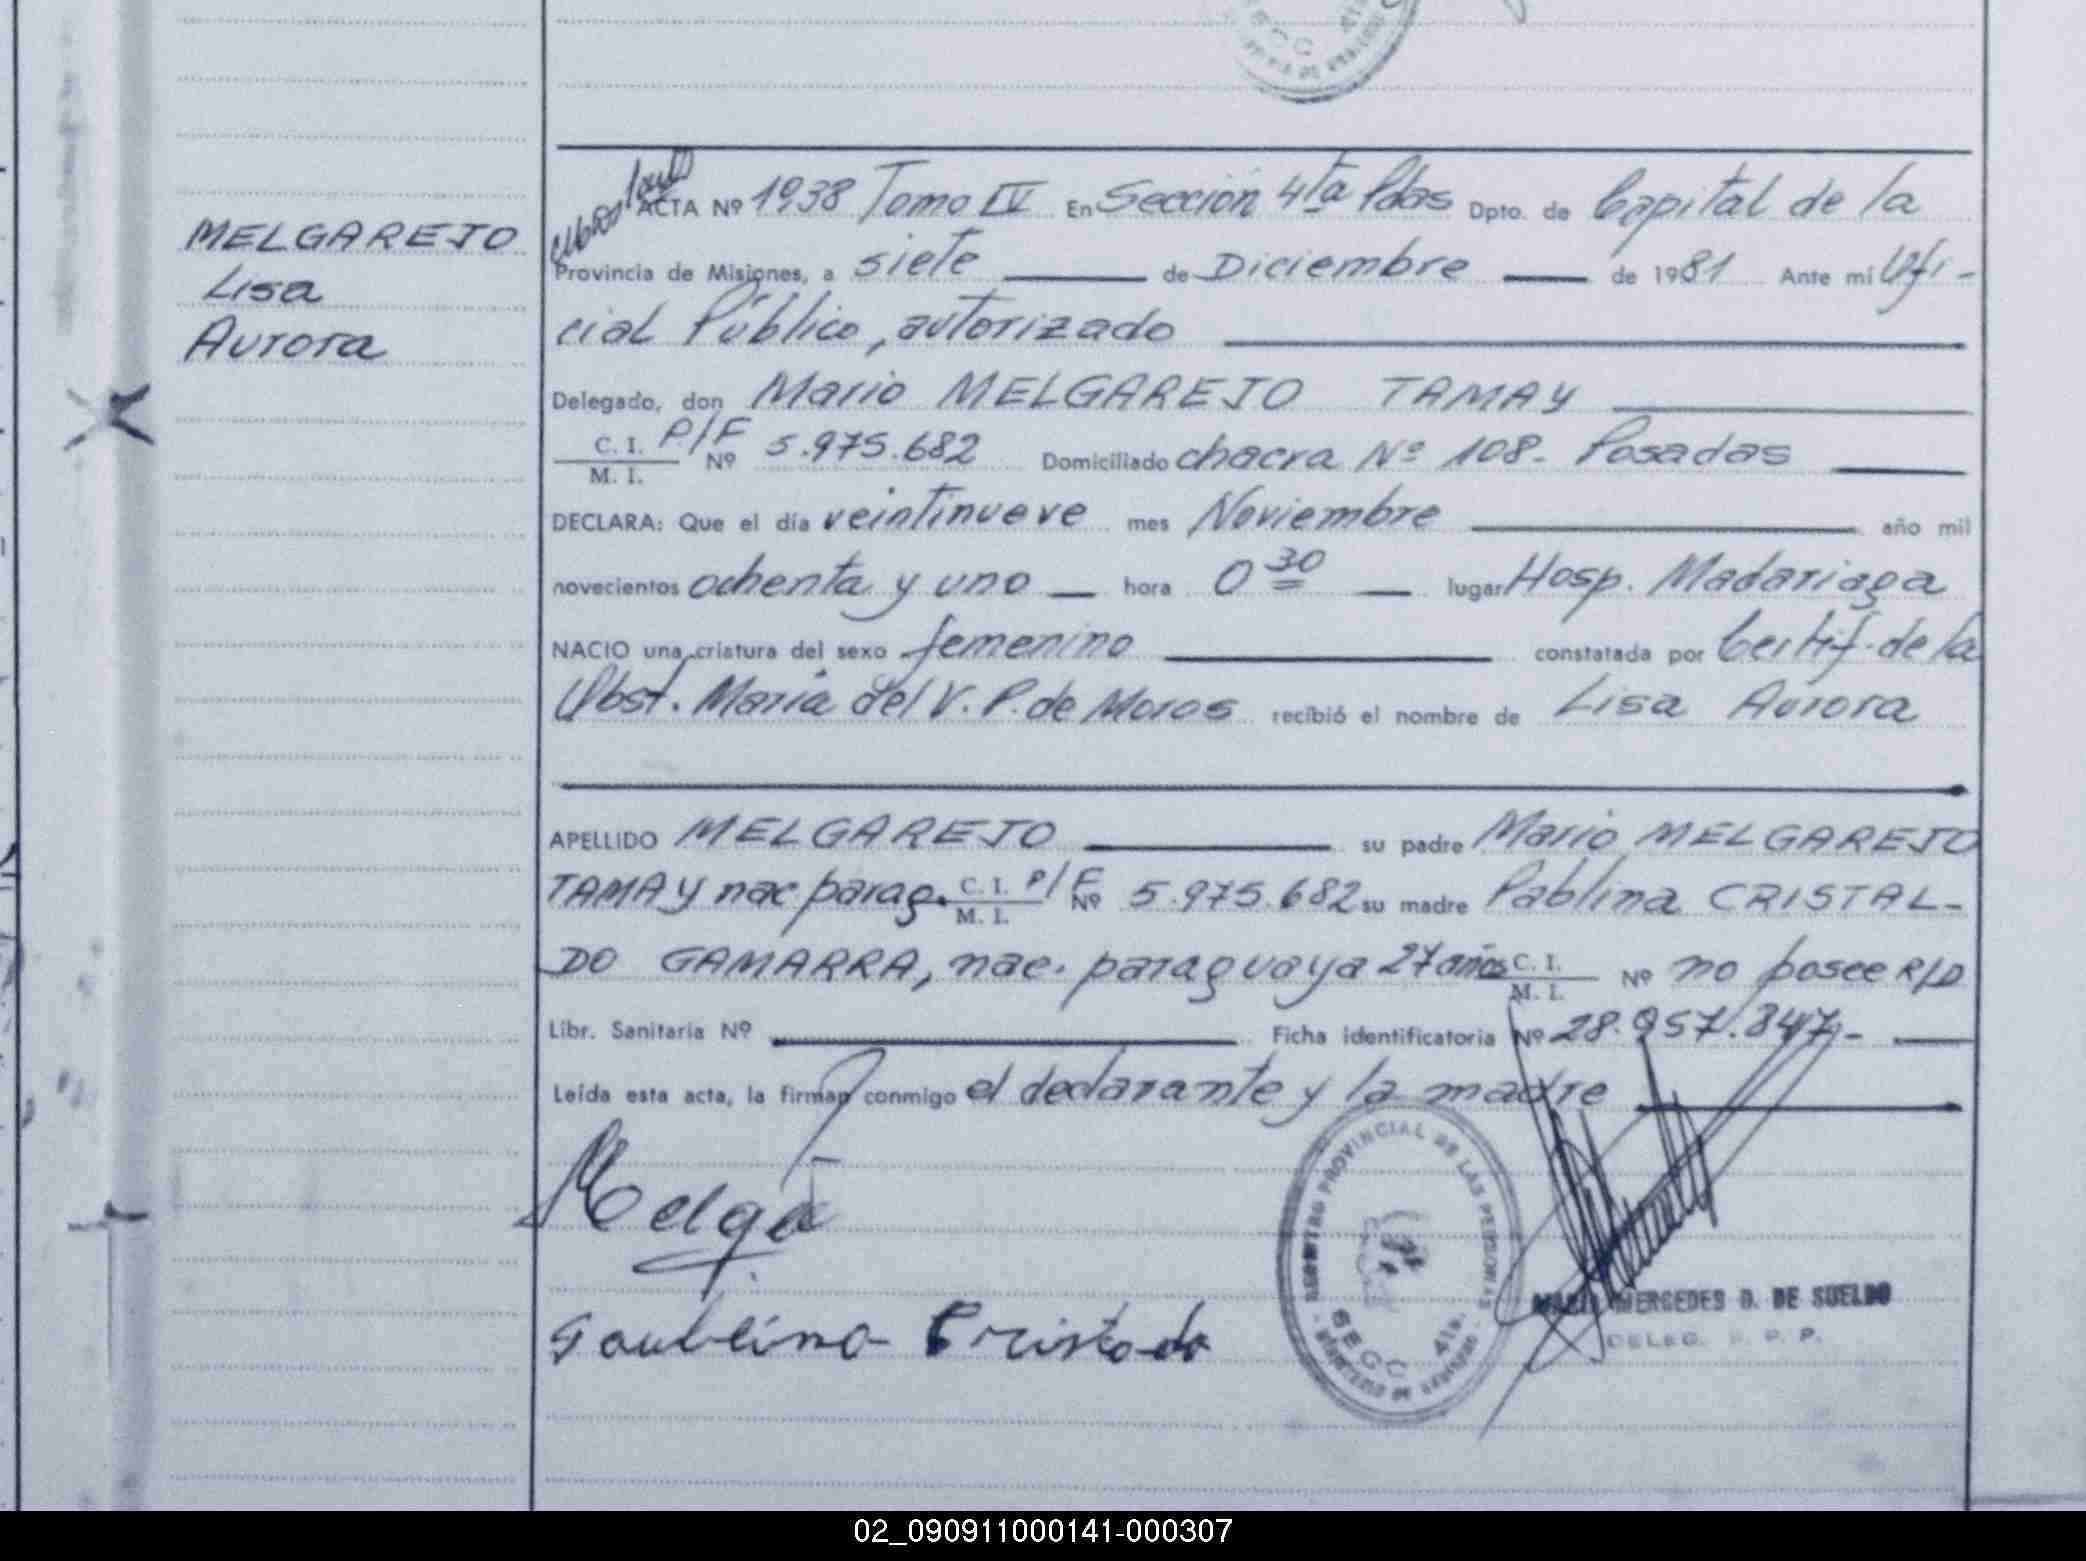 MELGAREJO
Lisa
Aurora
ACTA Nº 1938 Tomo IV En Sección 4ta Pdas Dpto. de Capital de la
Provincia de Misiones, a siete de Diciembre de 1981 Ante mí Ofi-
cial Público, autorizado
Delegado, don Mario MELGAREJO TAMAY
C. I. P/F
M. I. Nº 5.975.682 Domiciliado chacra Nº 108- Posadas
DECLARA: Que el día veintinueve mes Noviembre año mil
novecientos ochenta y uno hora 0 30 lugar Hosp. Madariaga
NACIO una criatura del sexo femenino constatada por Certif. de la
Obst. María del V. P. de Moros recibió el nombre de Lisa Aurora
APELLIDO MELGAREJO su padre Mario MELGAREJO
TAMAY nac. parag. C. I. P/F M. I. Nº 5.975.682 su madre Pablina CRISTAL-
DO GAMARRA, nac. paraguaya 27 años C. I. M. I. Nº no posee R/D
Libr. Sanitaria Nº Ficha identificatoria Nº 28.957.847.-
Leída esta acta, la firman conmigo el declarante y la madre
REGISTRO PROVINCIAL DE LAS PERSONAS
SECC 4ta.
MERCEDES D. DE SUELDO
DELEG. R. P. P.
02_090911000141-000307